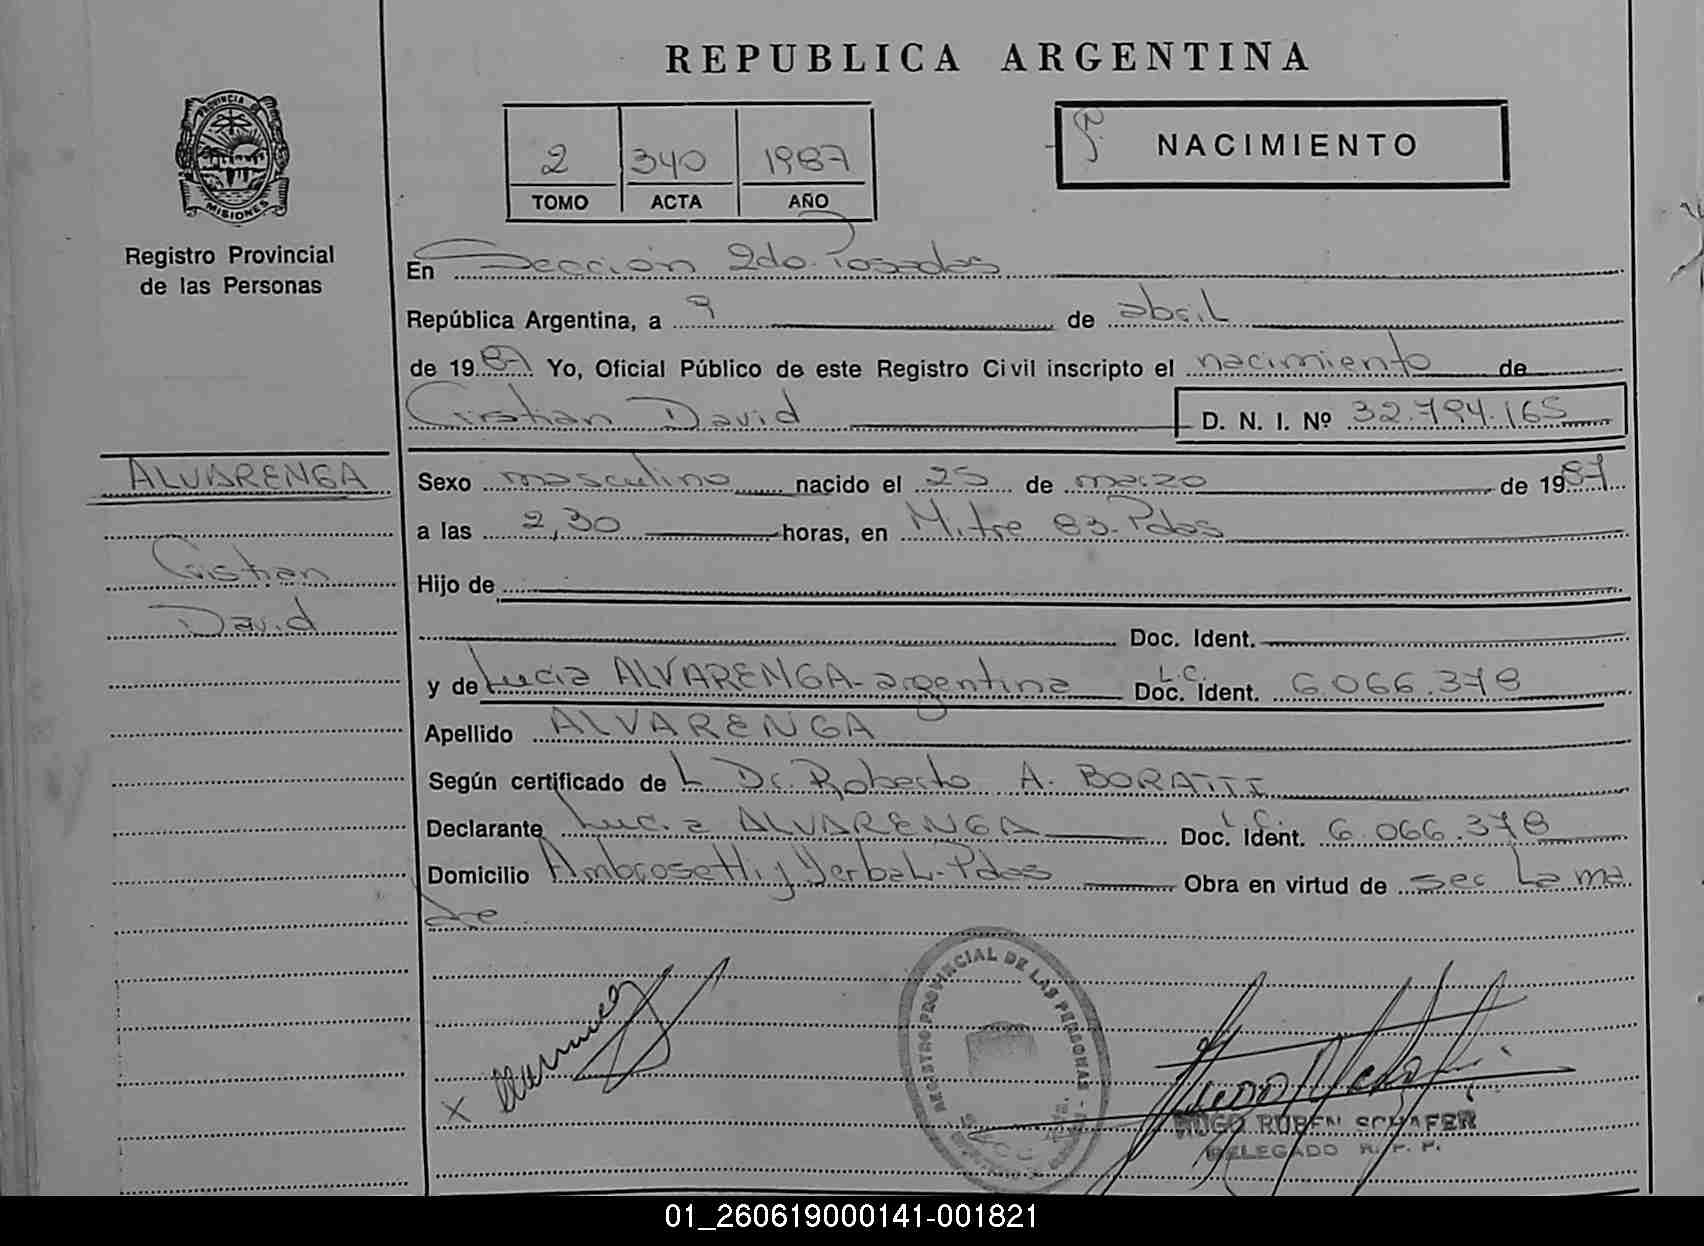 REPUBLICA ARGENTINA
PROVINCIA DE
MISIONES
Registro Provincial
de las Personas
2 340 1987
TOMO ACTA AÑO
NACIMIENTO
En Sección 2do. Posadas
República Argentina, a 9 de abril
de 1987 Yo, Oficial Público de este Registro Civil inscripto el nacimiento de
Cristian David D. N. I. Nº 32.794.165
ALVARENGA
Cristian
David
Sexo masculino nacido el 25 de marzo de 1987
a las 2,30 horas, en Mitre 83. Pdas
Hijo de
Doc. Ident.
y de Lucia ALVARENGA - argentina Doc. Ident. L.C. 6.066.378
Apellido ALVARENGA
Según certificado de L Dr. Roberto A. BORATTI
Declarante Lucia ALVARENGA Doc. Ident. L C. 6.066.378
Domicilio Ambrosetti y Yerbal - Pdas Obra en virtud de ser La ma
dre
x
REGISTRO PROVINCIAL DE LAS PERSONAS
HUGO RUBEN SCHAFER
DELEGADO R. P. P.
01_260619000141-001821